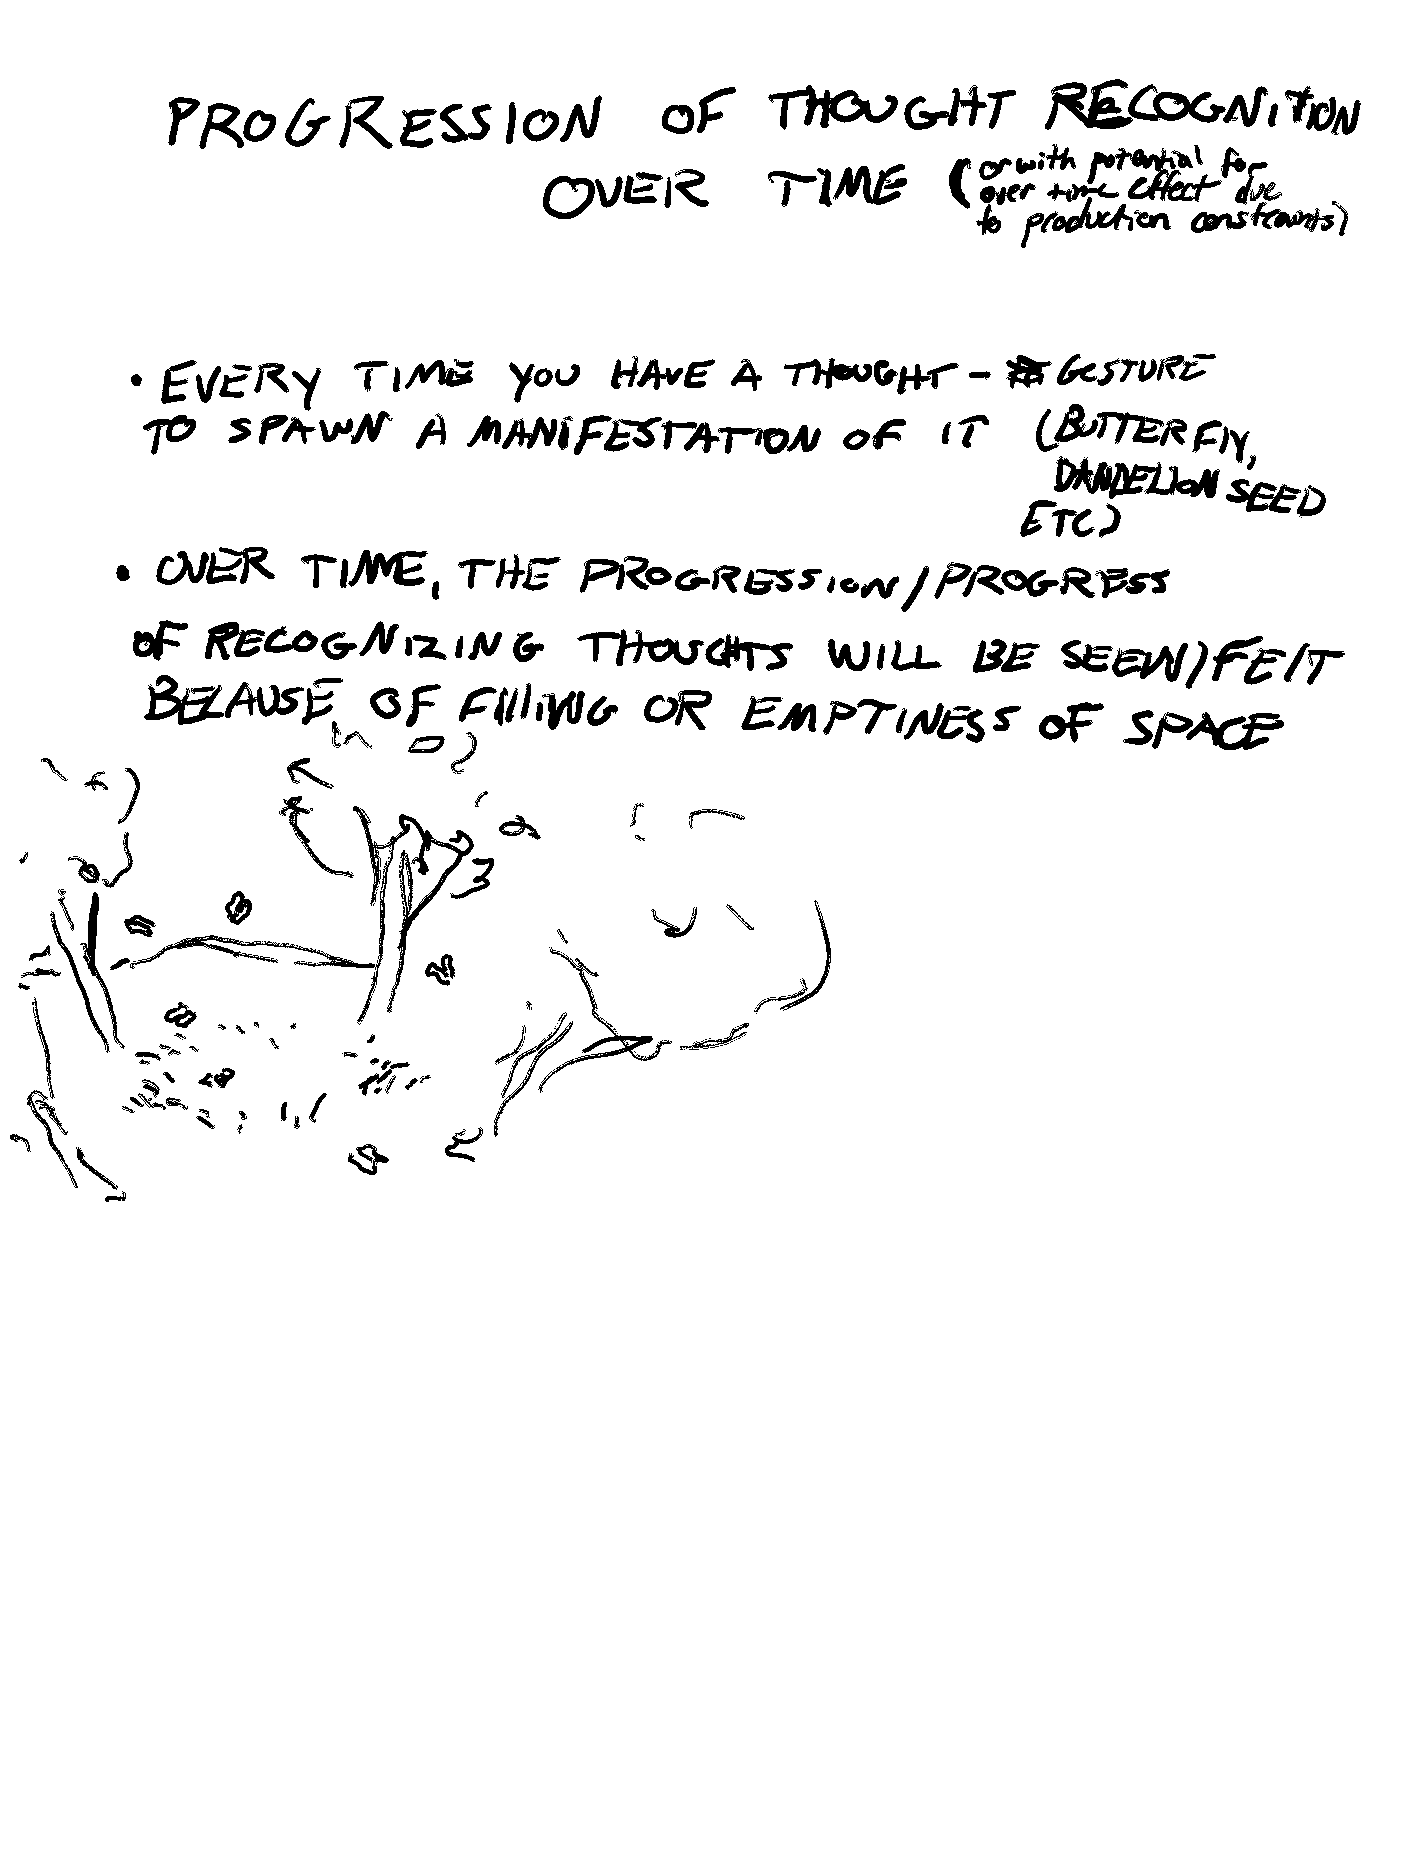 PROGRESSION OF THOUGHT RECOGNITION
OVER TIME (or with potential for
over time effect due
to production constraints)
• EVERY TIME YOU HAVE A THOUGHT - GESTURE
TO SPAWN A MANIFESTATION OF IT (BUTTERFLY,
DANDELION SEED
ETC)
• OVER TIME, THE PROGRESSION/PROGRESS
OF RECOGNIZING THOUGHTS WILL BE SEEN/FELT
BECAUSE OF FILLING OR EMPTINESS OF SPACE